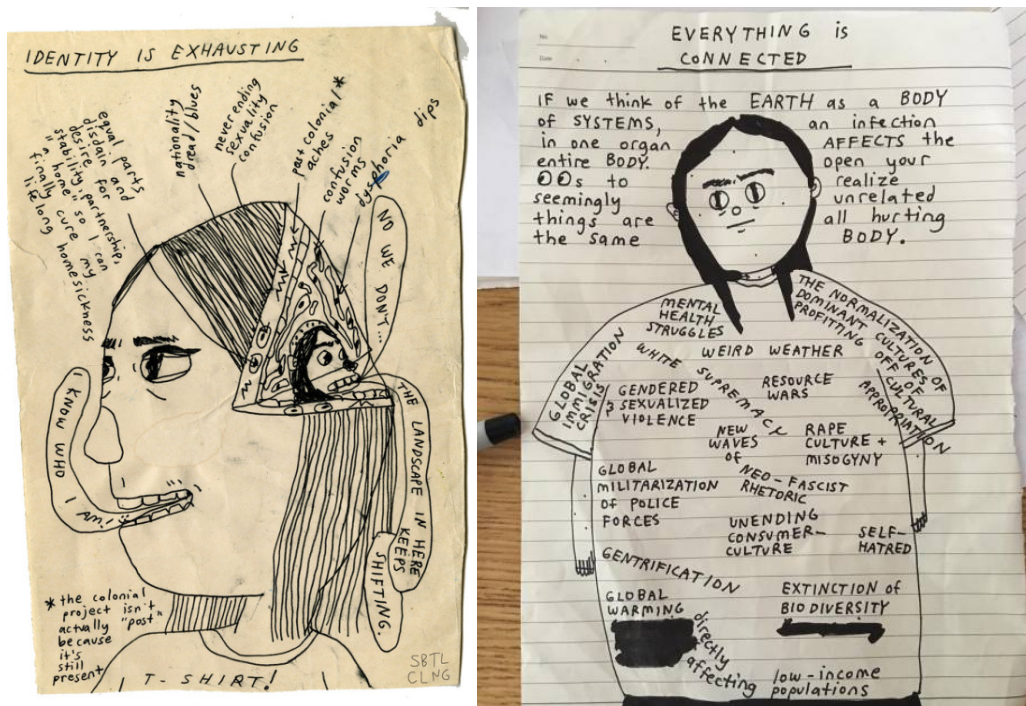 IDENTITY IS EXHAUSTING
equal parts
disdain and
desire for
stability, partnership,
"a home" so I can
finally cure my
lifelong homesickness
nationality
dread/blues
never ending
sexuality
confusion
post colonial *
aches
confusion
worms
dysphoria dips
NO WE DON'T...
I KNOW WHO I AM!
THE LANDSCAPE IN HERE KEEPS
SHIFTING.
* the colonial
project isn't
actually "post"
because
it's
still
present
T-SHIRT!
SBTL
CLNG
No.
Date
EVERYTHING is
CONNECTED
IF we think of the EARTH as a BODY
of SYSTEMS, an infection
in one organ AFFECTS the
entire BODY. open your
OOs to realize
seemingly unrelated
things are all hurting
the same BODY.
GLOBAL
IMMIGRATION
CRISIS
MENTAL
HEALTH
STRUGGLES
THE NORMALIZATION OF
DOMINANT CULTURES
PROFITTING OFF OF
CULTURAL
APPROPRIATION
WHITE SUPREMACY
WEIRD WEATHER
GENDERED
& SEXUALIZED
VIOLENCE
RESOURCE
WARS
NEW
WAVES
OF
NEO-FASCIST
RHETORIC
RAPE
CULTURE +
MISOGYNY
GLOBAL
MILITARIZATION
OF POLICE
FORCES
UNENDING
CONSUMER-
CULTURE
SELF-
HATRED
GENTRIFICATION
GLOBAL
WARMING
directly
affecting
low-income
populations
EXTINCTION of
BIODIVERSITY